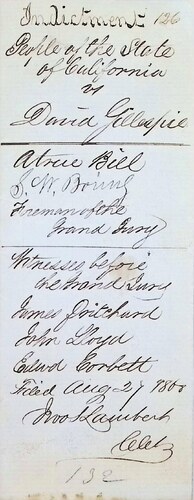 Indictment 126
People of the State
of California
vs
David Gillespie
A true Bill
S. W.
Foreman of the
Grand Jury
Witnesses before
the Grand Jury
James Pritchard
John Lloyd
Edwd Corbett
Filed Aug 27
Lambert
Clk
132